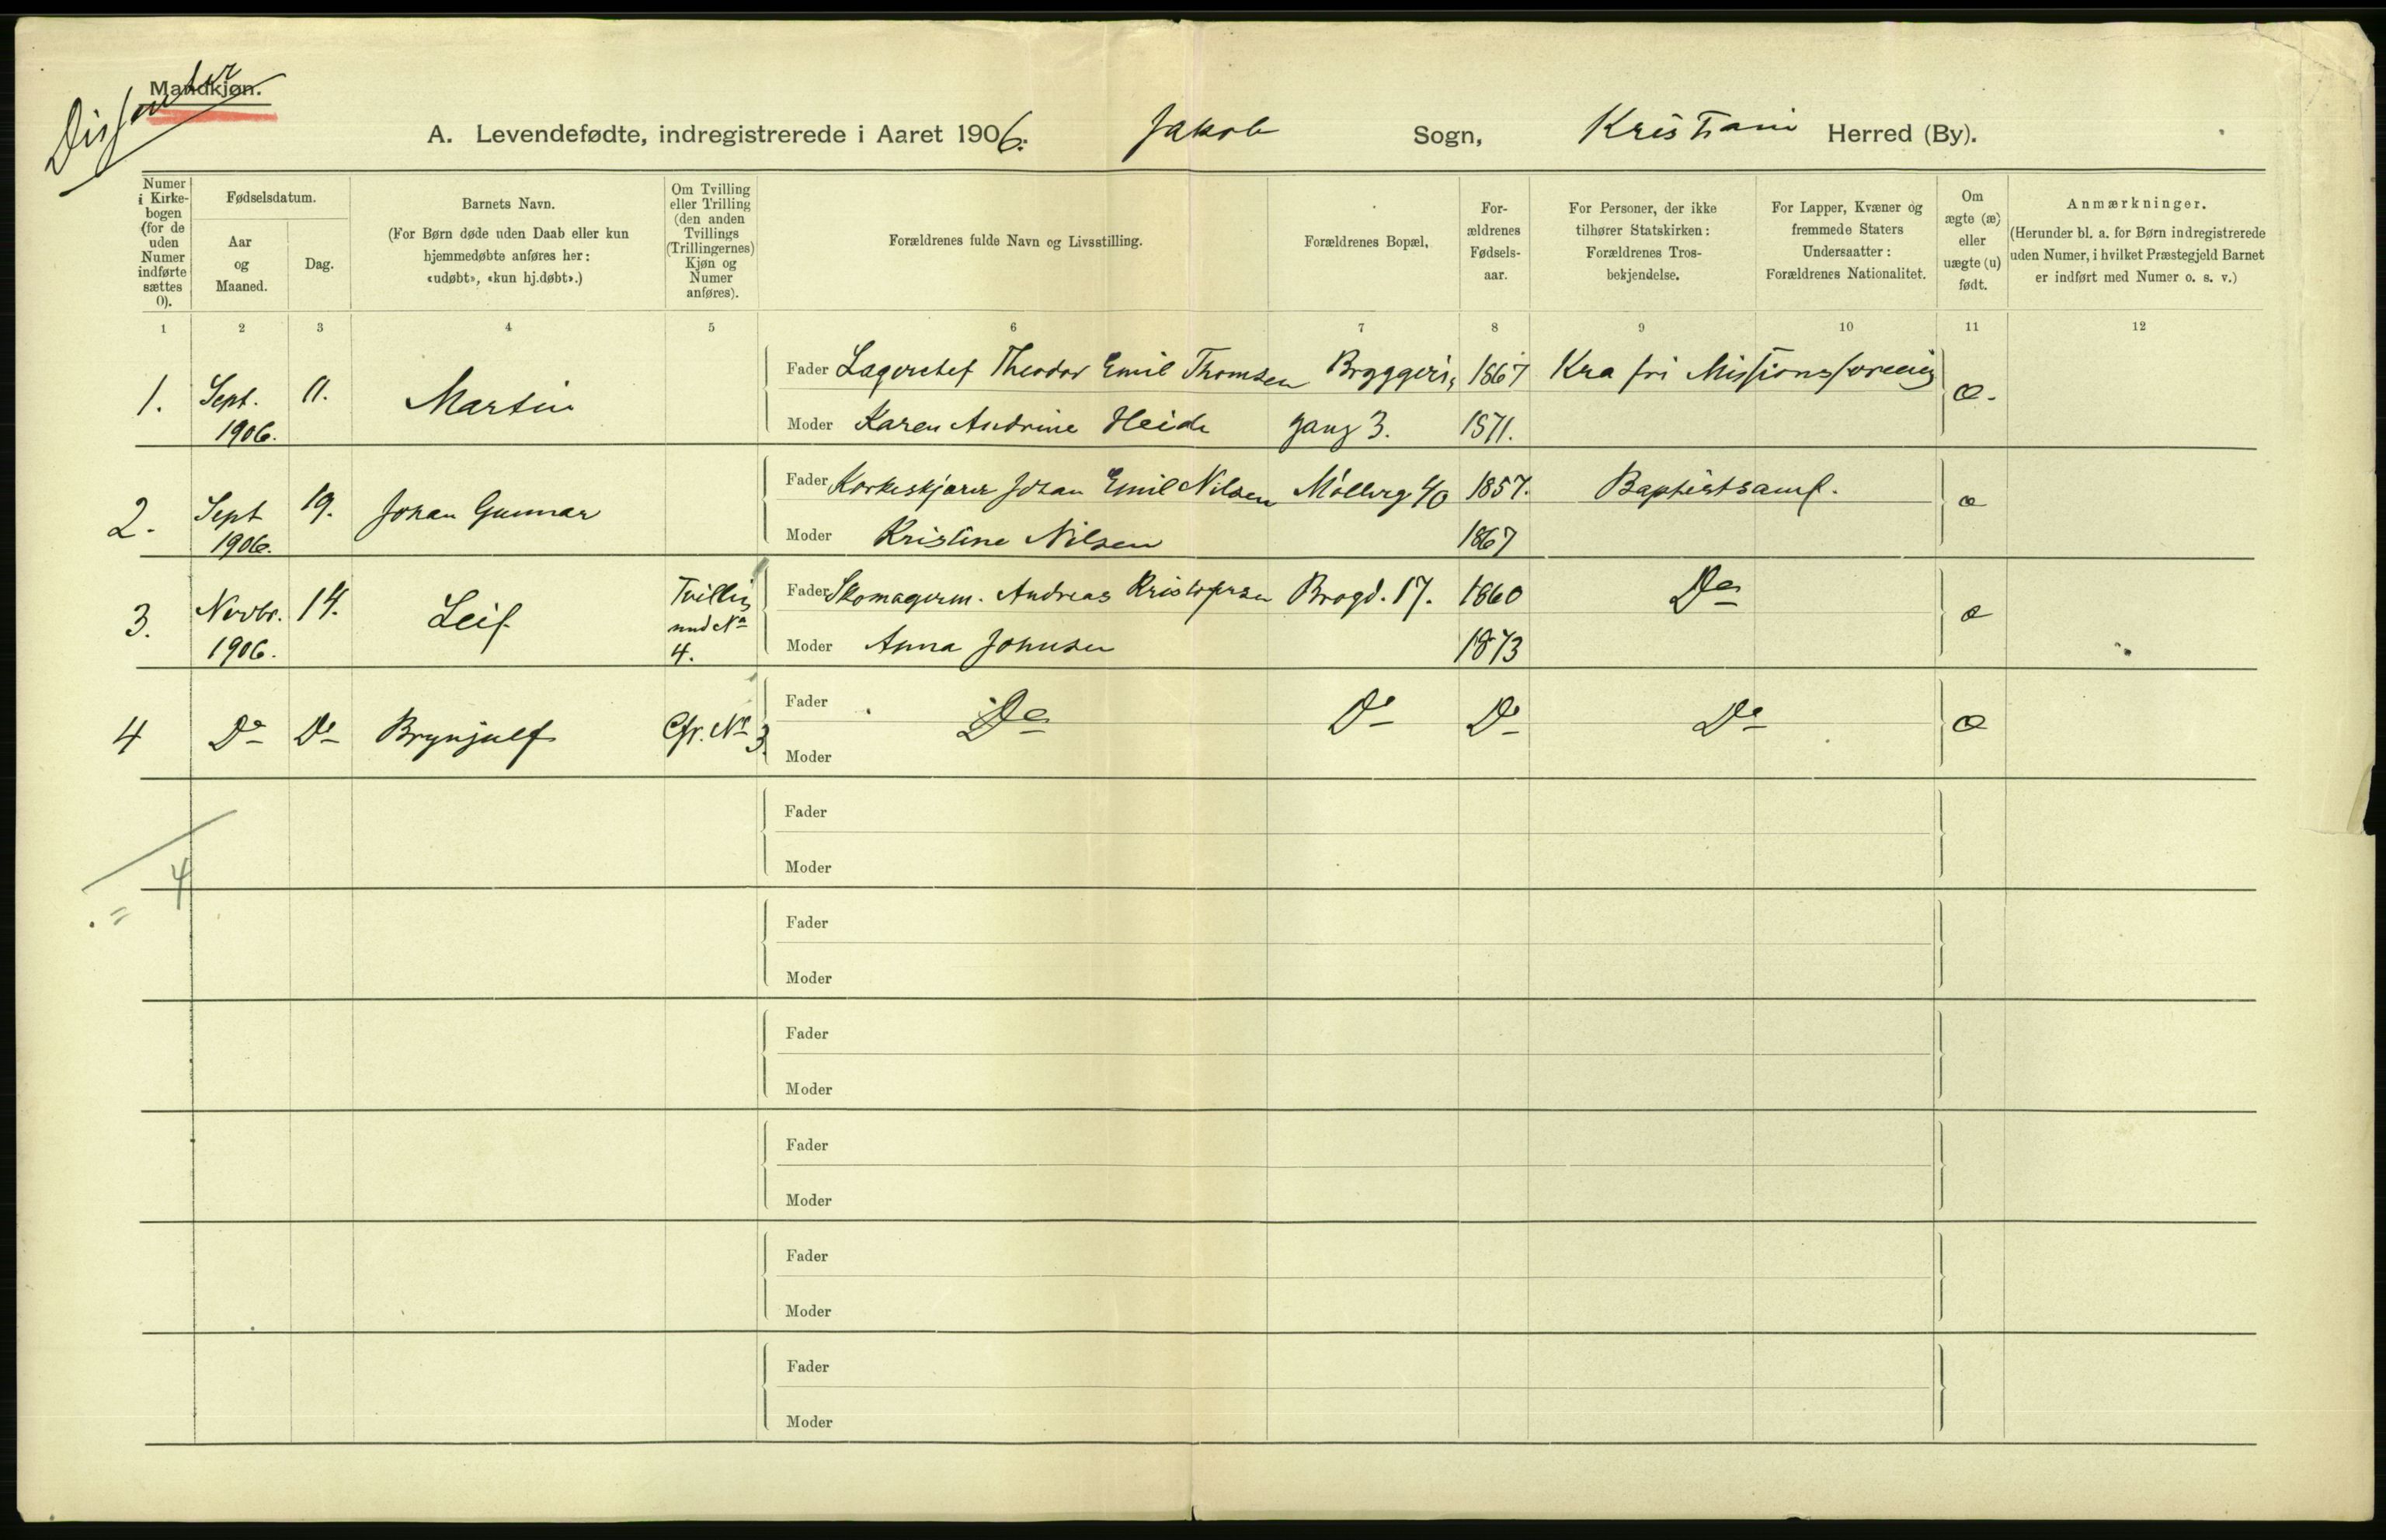 Dissenter
Mandkjøn.
A. Levendefødte, indregistrerede i Aaret 1906. Jakob Sogn, Kristiani Herred (By).
Numer i Kirkebogen (for de uden Numer indførte sættes 0).
Fødselsdatum.
Aar og Maaned.
Dag.
Barnets Navn.
(For Børn døde uden Daab eller kun hjemmedøbte anføres her: «udøbt», «kun hj.døbt».)
Om Tvilling eller Trilling (den anden Tvillings (Trillingernes) Kjøn og Numer anføres).
Forældrenes fulde Navn og Livsstilling.
Forældrenes Bopæl,
Forældrenes Fødselsaar.
For Personer, der ikke tilhører Statskirken: Forældrenes Trosbekjendelse.
For Lapper, Kvæner og fremmede Staters Undersaatter: Forældrenes Nationalitet.
Om ægte (æ) eller uægte (u) født.
Anmærkninger.
(Herunder bl. a. for Børn indregistrerede uden Numer, i hvilket Præstegjeld Barnet er indført med Numer o. s. v.)
1 2 3 4 5 6 7 8 9 10 11 12
1. Sept. 1906. 11. Martin Fader Lagerchef Theodor Emil Thomsen Bryggeri, 1867 Kra fri Missionsforening æ.
Moder Karen Andrine Heide gang 3. 1871.
2. Sept 1906. 19. Johan Gunnar Fader Korkeskjærer Johan Emil Nilsen Møllerg 40 1857. Baptistsamf. æ
Moder Kristine Nilsen 1867
3. Novbr. 1906. 14. Leif Tvilling med No 4. Fader Skomagerm. Andreas Kristofersen Brogd. 17. 1860 Do æ
Moder Anna Johnsen 1873
4 Do Do Brynjulf Cfr. No 3. Fader Do Do Do Do æ
Moder
Fader
Moder
4
=
Fader
Moder
Fader
Moder
Fader
Moder
Fader
Moder
Fader
Moder